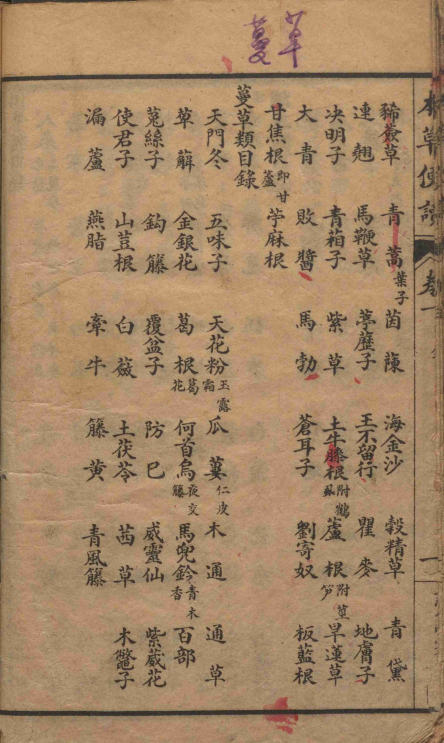 蔓草
本草便讀 卷一
豨薟草 青蒿葉子 茵蔯 海金沙 穀精草 青黛
連翹 馬鞭草 葶藶子 王不留行 瞿麥 地膚子
決明子 青葙子 紫草 土牛膝根附鶴蝨 蘆根附葦笋 旱蓮草
大青 敗醬 馬勃 蒼耳子 劉寄奴 板藍根
甘焦根即甘蘆 苧麻根
蔓草類目錄
天門冬 五味子 天花粉玉露霜 瓜蔞仁皮 木通 通草
草薢 金銀花 葛根葛花 何首烏夜交藤 馬兜鈴青木香 百部
菟絲子 鈎籐 覆盆子 防巳 威靈仙 紫葳花
使君子 山荳根 白蘞 土茯苓 茜草 木鱉子
漏蘆 燕脂 牽牛 籐黃 青風籐